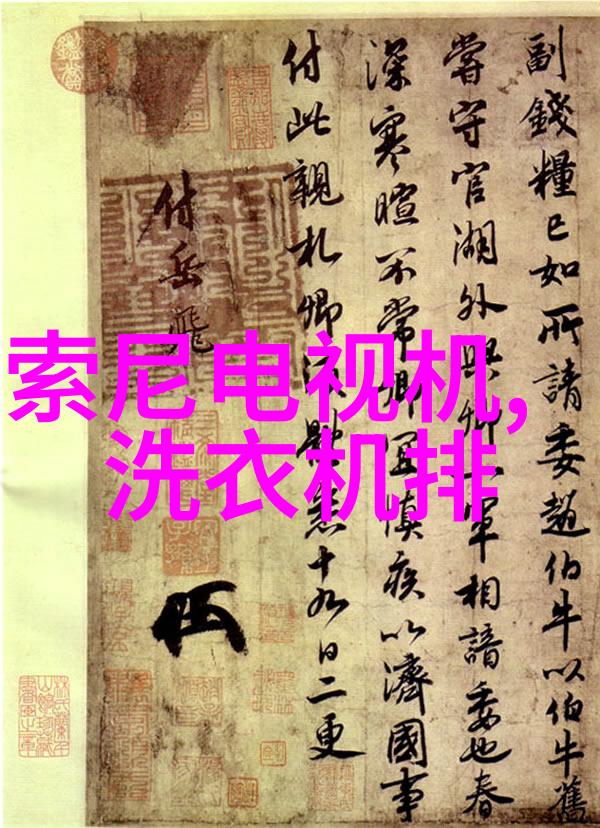 索尼电视机,
洗衣机排
副錢糧已如所請委趙伯牛以伯牛舊
嘗守官湖外與卿一軍相諳委也春
深寒暄不常卿宜慎疾以濟國事
付此親札卿須體悉十九日二更
付岳飛